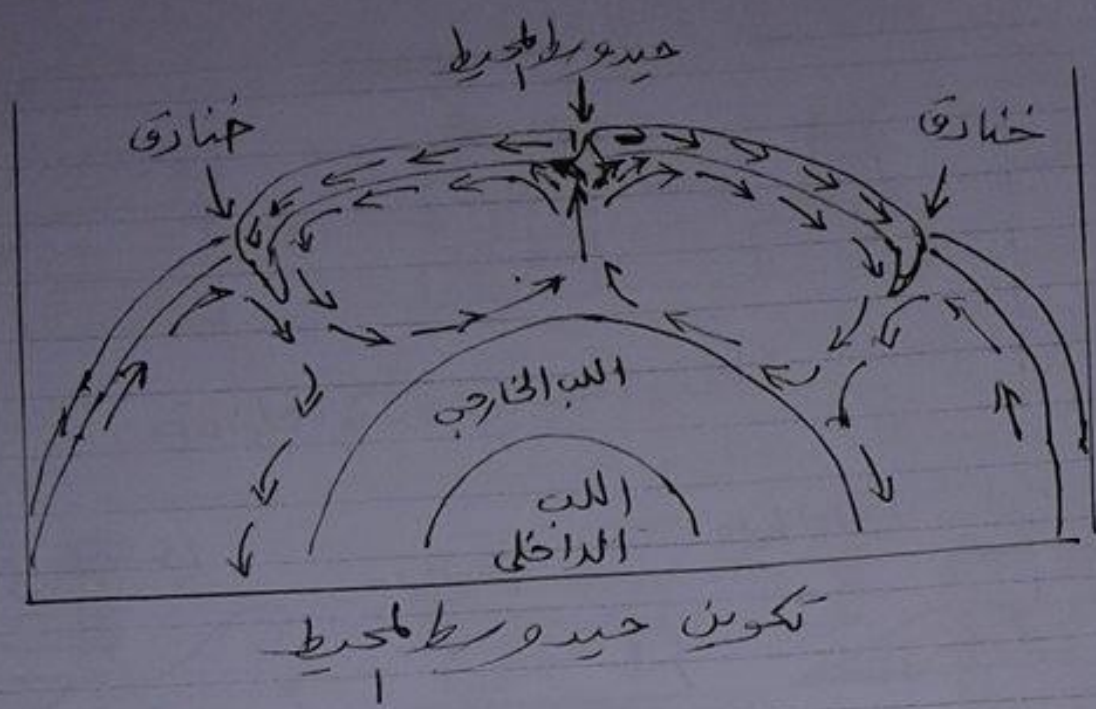 حيد وسط المحيط
خنادق
خنادق
اللب الخارجي
اللب
الداخلي
تكوين حيد وسط المحيط